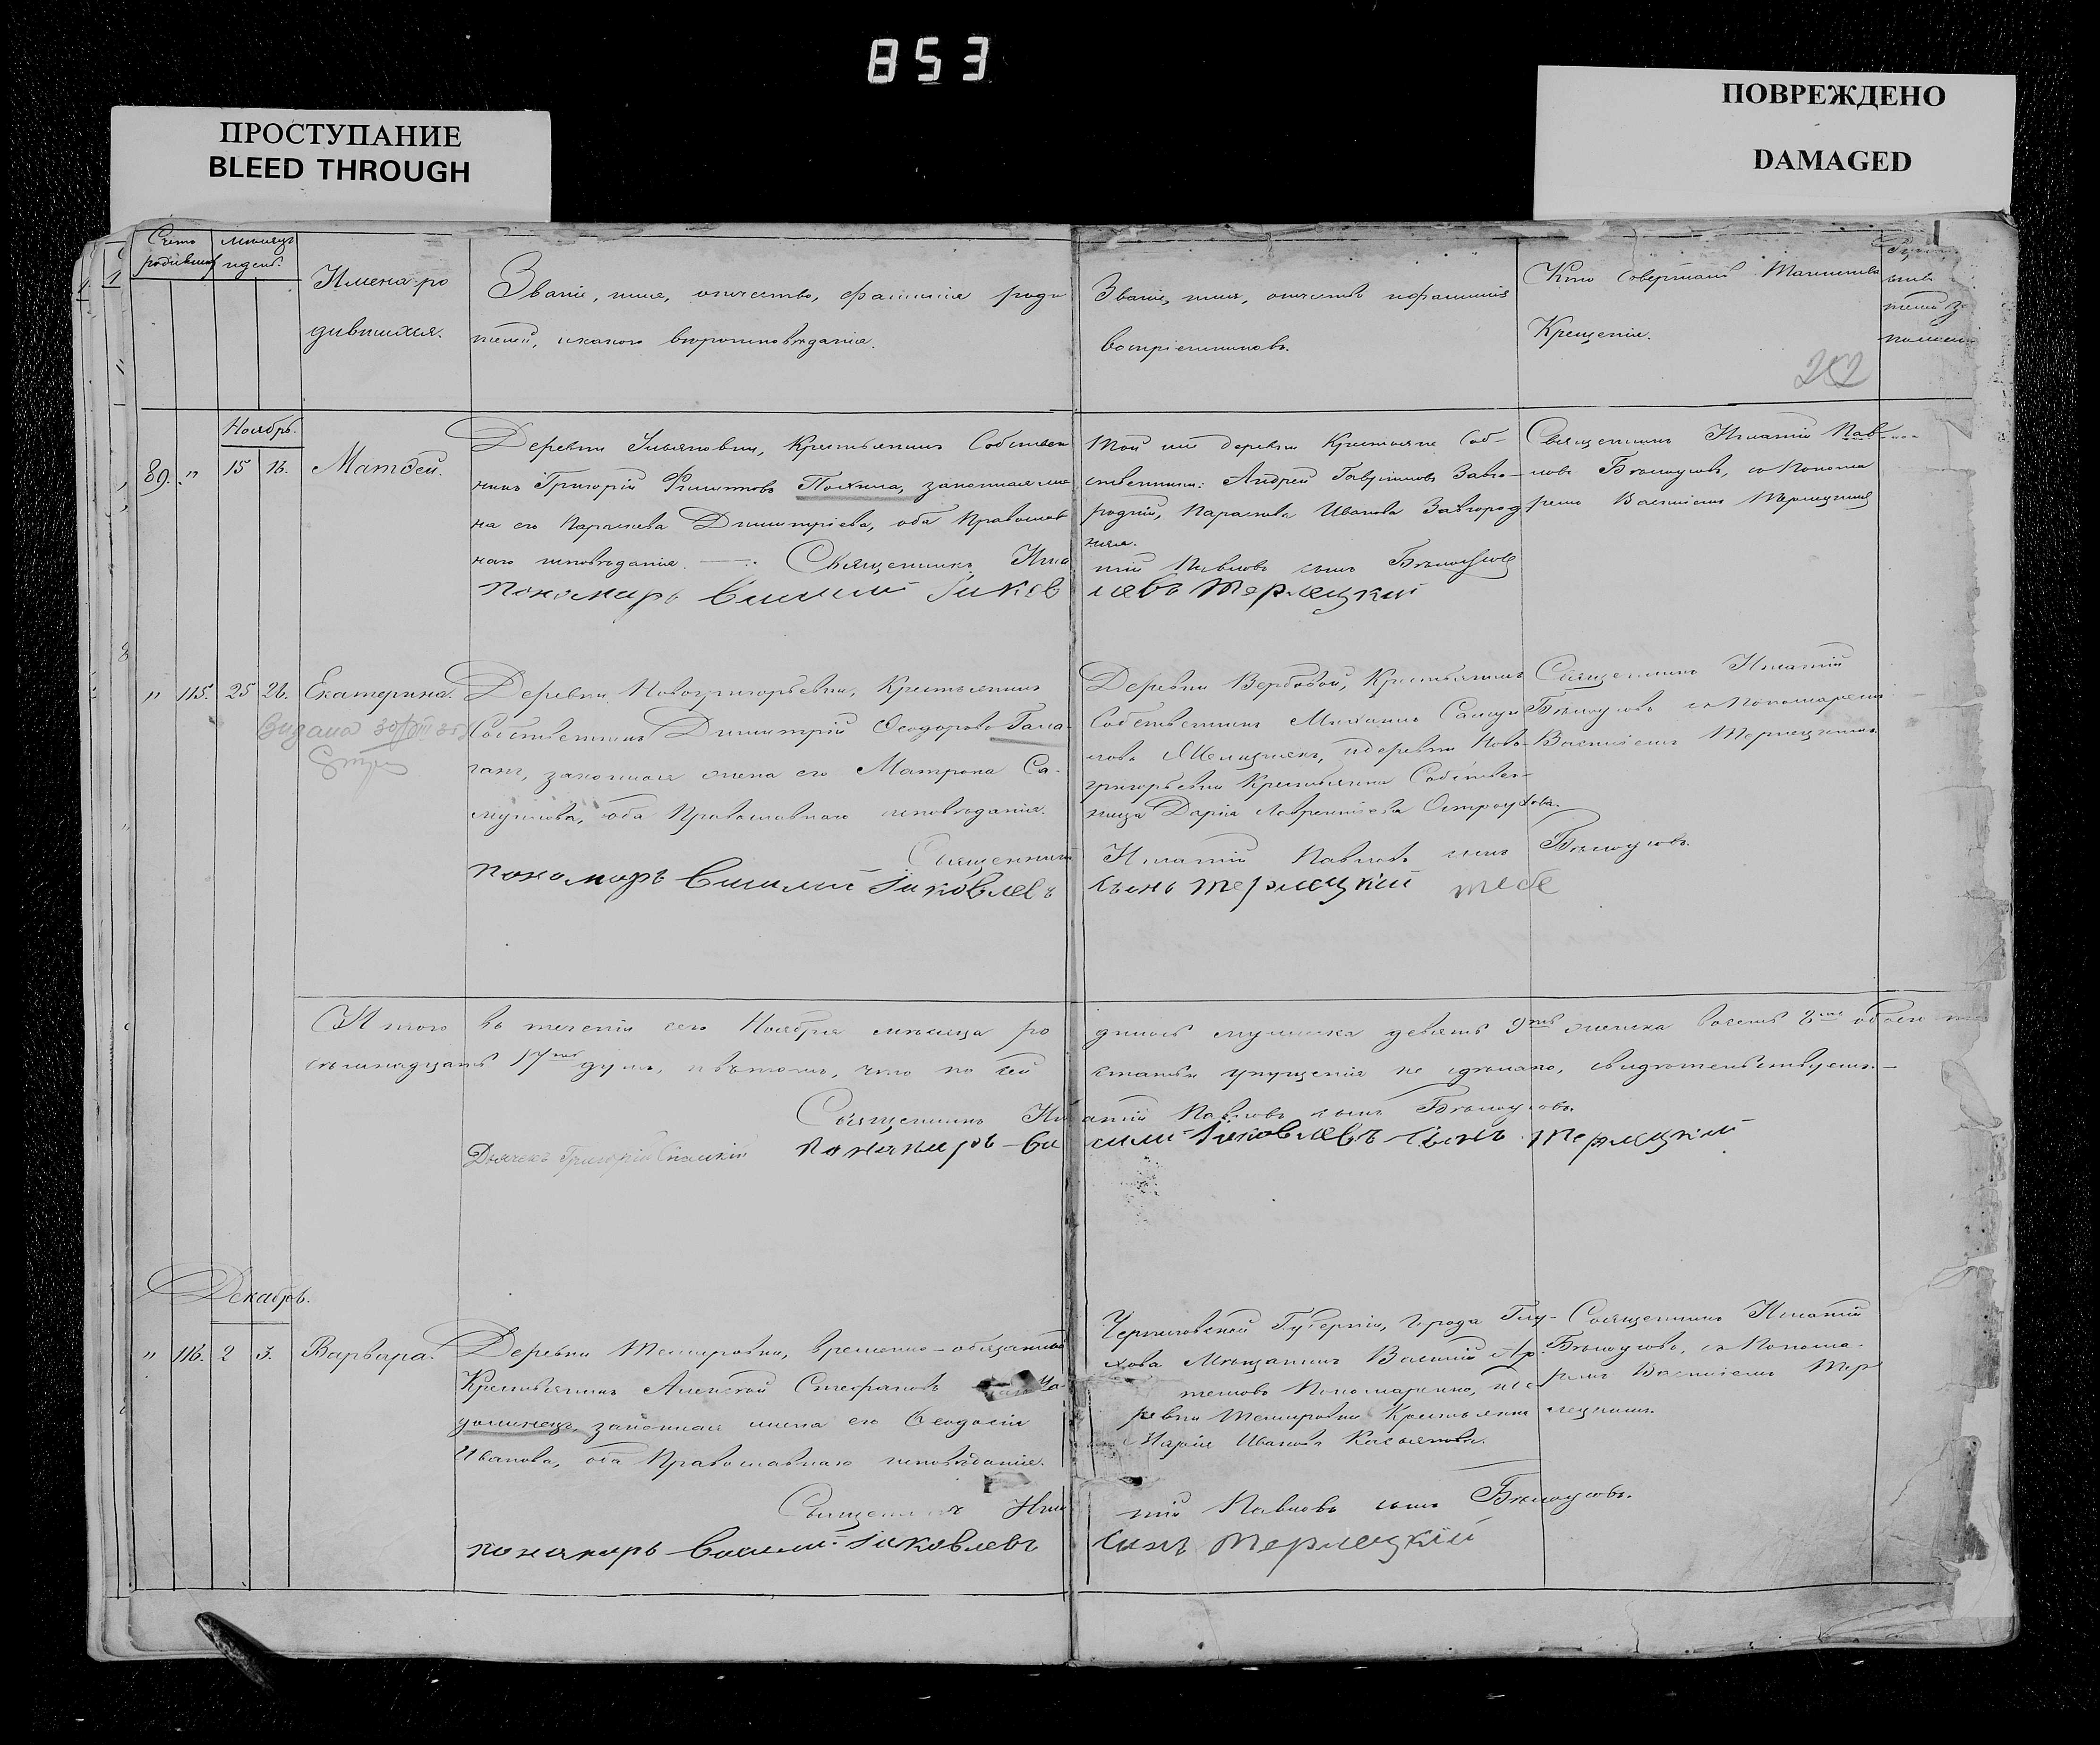 853
ПРОСТУПАНИЕ
BLEED THROUGH
ПОВРЕЖДЕНО
DAMAGED
Счетъ родившихся
Мѣсяцъ и день.
Имена ро
дившихся.
Званіе, имя, отчество, фамилія роди
телей, и какого вѣроисповѣданія.
Званіе, имя, отчество и фамилія
воспріемниковъ.
Кто совершалъ Таинство
Крещенія.
202
Ноябрь.
89. " 15 16. Матѳей.
Деревни Ульяновки, Крестьянинъ Собствен
никъ Григорій Филиповъ Похила, законная же
на его Параскева Димитріева, оба Православ
наго исповѣданія. — Священникъ Игна
пономарь Василий Іаков
Той же деревни Крестьяне Соб-
ственники: Андрей Гавріиловъ Завго-
родній, Параскева Иванова Завгород
няя.
тій Павловъ сынъ Бѣлоусовъ
левъ Терлецкий
Священникъ Игнатій Пав
ловъ Бѣлоусовъ, со Понома
ремъ Василіемъ Терлецкимъ
" 115. 25 26. Екатерина.
Видана
Деревни Новогригорьевки, Крестьянинъ
Собственникъ Димитрій Ѳеодоровъ Гала-
ганъ, законная жена его Матрона Са-
муилова, оба Православнаго исповѣданія.
Священникъ
пономарь Василий Іаковлевъ
Деревни Вербовой, Крестьянинъ
Собственникъ Михаилъ Самуи
ловъ и деревни Ново-
григорьевки Крестьянка Собствен-
ница Дарія Лаврентіева Остроухова.
Игнатій Павловъ сынъ Бѣлоусовъ.
сынъ Терлецкий
Священникъ Игнатій
Бѣлоусовъ со Пономаремъ
Василіемъ Терлецкимъ
Итого въ теченіи сего Ноября мѣсяца ро дилось мужеска девять 9ть женска восемь 8мь обоего
семнадцать 17ть душъ, и въ томъ, что по сей статьи упущенія не сдѣлано, свидѣтельствуемъ.—
Священникъ Игнатій Павловъ сынъ Бѣлоусовъ.
Дьячекъ Григорій пономаръ Василий Іаковлевъ сынъ Терлецкий
Декабрь.
" 116. 2 3. Варвара.
Деревни Темировки, временно-обязанный
Крестьянинъ Алексѣй Стефановъ
законная жена его Ѳеодосія
Иванова, оба Православнаго исповѣданія.
Священникъ Игна
пономарь Василий Іаковлевъ
Черниговской Губерніи, города Глу-
хова Мѣщанинъ Василій Ар-
темовъ Пономаренко, и де
ревни Темировки Крестьянка
Марія Иванова Касьянова.
тій Павловъ сынъ Бѣлоусовъ.
сынъ Терлецкій
Священникъ Игнатій
Бѣлоусовъ, со Понома-
ремъ Василіемъ Тер
лецкимъ.